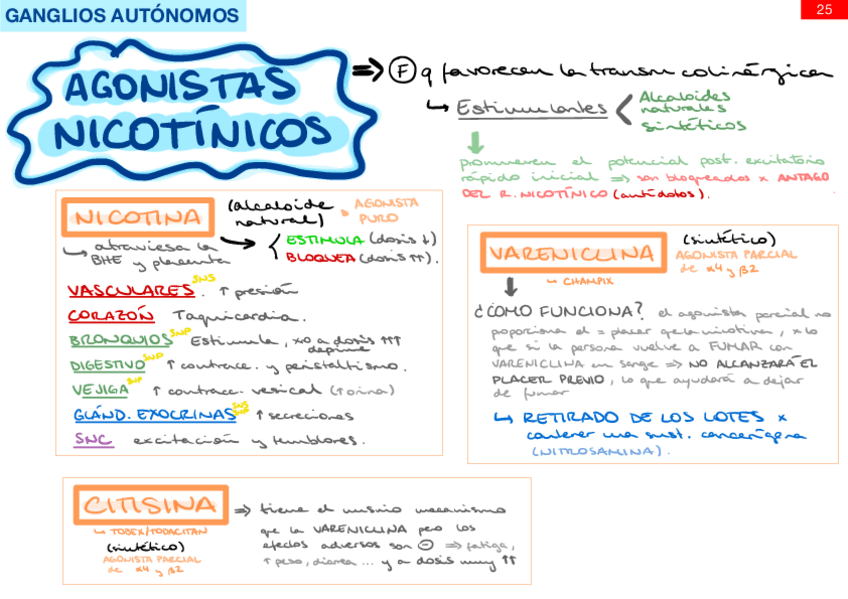 GANGLIOS AUTÓNOMOS
25
AGONISTAS
NICOTÍNICOS
⇒ Ⓕ q favorecen la transm colinérgica
↳ Estimulantes < Alcaloides
naturales
sintéticos
promueven el potencial post. excitatorio
rápido inicial ⇒ son bloqueados x ANTAGO
DEL R. NICOTÍNICO (antídotos).
NICOTINA
(alcaloide
natural)
AGONISTA
PURO
↳ atraviesa la
BHE y placenta
ESTIMULA (dosis ↓)
BLOQUEA (dosis ↑↑).
VASCULARES SNS . ↑ presión
CORAZÓN Taquicardia.
BRONQUIOS SNP Estimula, xo a dosis ↑↑↑
deprime
DIGESTIVO SNP ↑ contracc. y peristaltismo.
VEJIGA SNP ↑ contracc. vesical (↑orina)
GLÁND. EXOCRINAS SNS SNP ↑ secreciones
SNC excitación y temblores.
VARENICLINA
(sintético)
AGONISTA PARCIAL
de α4 y β2
↳ CHAMPIX
¿CÓMO FUNCIONA? el agonista parcial no
proporciona el = placer que la nicotina, x lo
que si la persona vuelve a FUMAR con
VARENICLINA en sangre ⇒ NO ALCANZARÁ EL
PLACER PREVIO, lo que ayudará a dejar
de fumar
↳ RETIRADO DE LOS LOTES x
contener una sust. cancerígena
(NITROSAMINA).
CITISINA
↳ TOBEX/TODACITAN
(sintético)
AGONISTA PARCIAL
de α4 y β2
⇒ tiene el mismo mecanismo
que la VARENICLINA pero los
efectos adversos son ⊖ ⇒ fatiga,
↑ peso, diarea ... y a dosis muy ↑↑